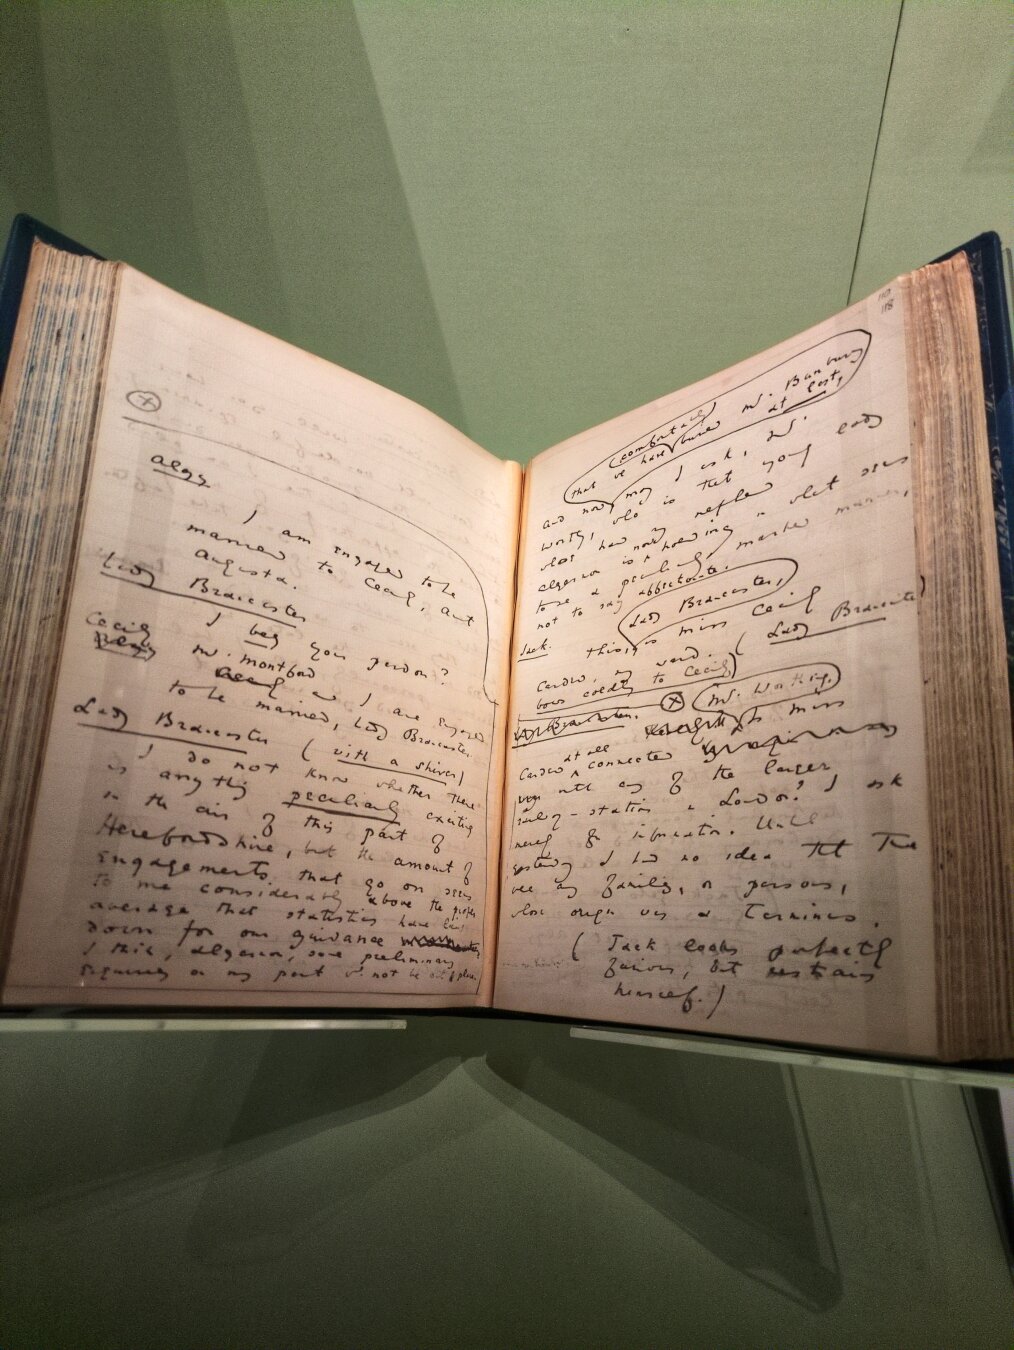 Algy
I am engaged to be
married to Cecily, Aunt
Augusta.
Lady Brancaster
I beg your pardon?
Cecily
Mr. Montford and I are engaged
to be married, Lady Brancaster.
Lady Brancaster (with a shiver)
I do not know whether there
is anything peculiarly exciting
in the air of this part of
Herefordshire, but the amount of
engagements that go on seems
to me considerably above the proper
average that statistics have laid
down for our guidance
I think, Algernon, some preliminary
enquiry on my part wd. not be out of place
110
118
comfortably Mr. Bunbury
that we have buried at last,
and now may I ask, Mr.
Worthing, who is that young lady
whose hand my nephew
Algernon is holding in what seems
to be a peculiarly marked manner,
not to say affectionate.
Lady Brancaster,
Jack. This is Miss Cecily
Cardew, my ward. (Lady Brancaster
bows coldly to Cecily)
Lady Brancaster. Mr. Worthing, is Miss
Cardew at all connected
with any of the larger
railway-stations in London? I ask
merely for information. Until
yesterday I had no idea that there
were any families, or persons,
whose origin was a Terminus.
(Jack looks perfectly
furious, but restrains
himself.)